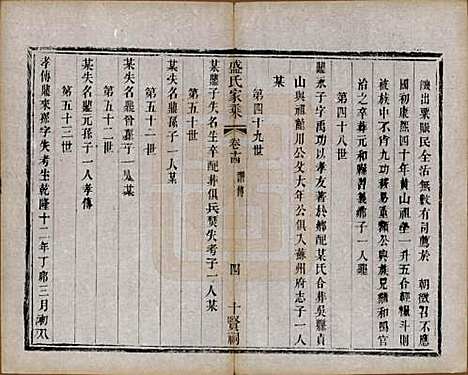 饑出粟賑民全活無數有司薦於 朝徵召不應
國初康熙四十年黃山祖塋一升五合經輸斗則
被族中不肖
治之卒葬元和縣習義鄉子一人
第四十八世
永子字禹功以孝友著於鄉配某氏合葬吳縣貞
山與祖觀川公父大年公俱入蘇州府志子一人
某
第四十九世
盛氏家乘
卷十四
譜傳
四
十賢祠
某 子失名生卒配葬俱兵燹失考子一人某
第五十世
某失名 子一人某
第五十一世
某失名 曾孫某子一人
第五十二世
某失名 元孫某子一人孝傳
第五十三世
孝傳 來孫字失考生乾隆十二年丁卯三月初八